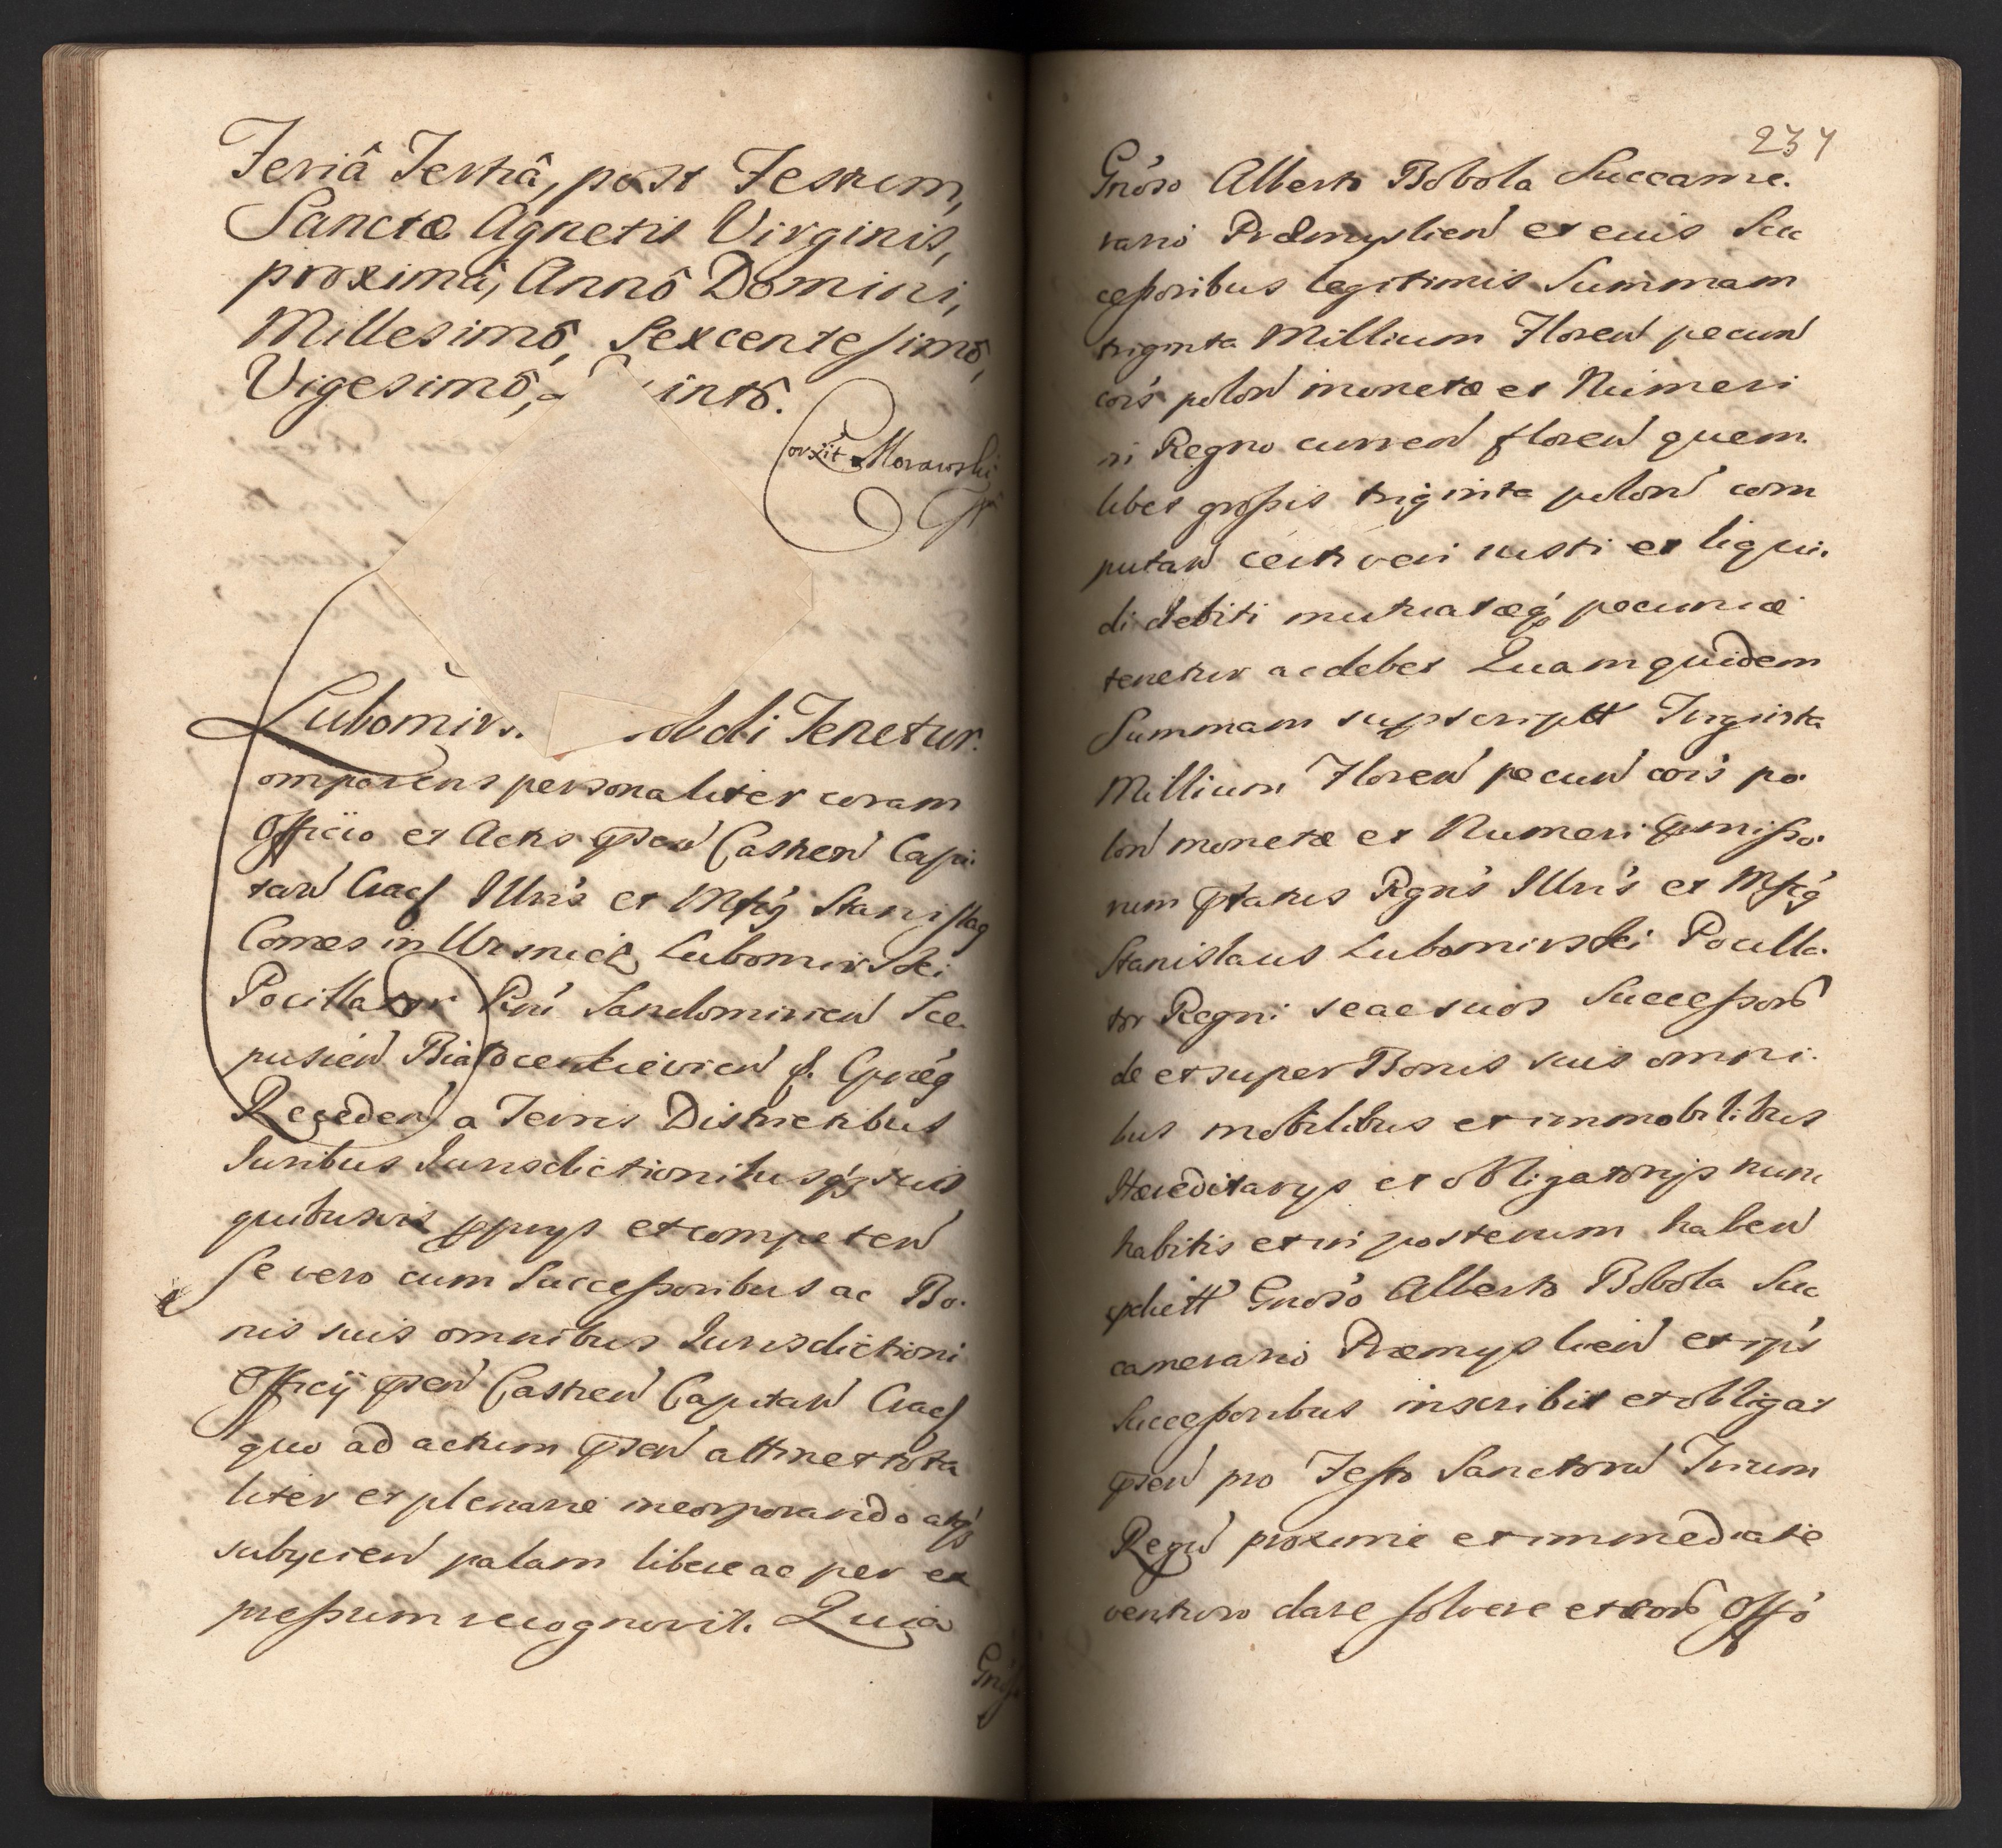 Feriâ Tertiâ, post Festum,
Sanctæ Agnetis Virginis,
proximâ, Annô Domini,
Millesimô, Sexcentesimô,
Vigesimô, intô.
Corxit Morawski
Lubomirs. obdi Tenetur.
omparens personaliter coram
Officio et Actis pñten Castren Capi-
tan Crac Illris et Mfcg Stanislag
Comes in Wisnicz Lubomirski
Pocillator Rni Sandomirien Sce-
pusien Białocerkievien &. Gnæg
Receden a Terris Districtibus
Iuribus Iurisdictionibusq suis
quibusvis ppriys et competen
se vero cum Successoribus ac Bo-
nis suis omnibus Iurisdictioni
Officÿ pñten Castren Capitan Crac
quo ad actum pñten attinet tota
liter et plenarie incorporando atq
subycien palam libere ac per ex
pressum recognovit. Quia
Gnoso
237
Gnóso Alberto Bobola Succame-
rario Præmyslien et eius Suc
cessoribus legitimis Summam
triginta Millium Floren pecun
cois polon monetæ et Numeri
in Regno curren floren quem-
libet grossis triginta polon com
putan certi veri iusti et liqui-
di debiti mutuatæq pecuniæ
tenetur ac debet Quam quidem
Summam supscriptt Triginta
Millium Floren pecun cois po-
lon monetæ et Numeri pmisso-
rum pfatus Rgns Illris et Mfcg
Stanislaus Lubomirski Pocilla-
tor Regni se ac suos Successors
de et super Bonis suis omni-
bus mobilibus et immobilibus
Hæreditarys et obligatorys nunc
habitis et in posterum haben
pdictt Gnoso Alberto Bobola Suc
camerario Præmyslien et ips
Successoribus inscribit et obligat
pñten pro Festo Sanctoru Trium
Regu proxime et immediate
venturo dare solvere et cor Offo